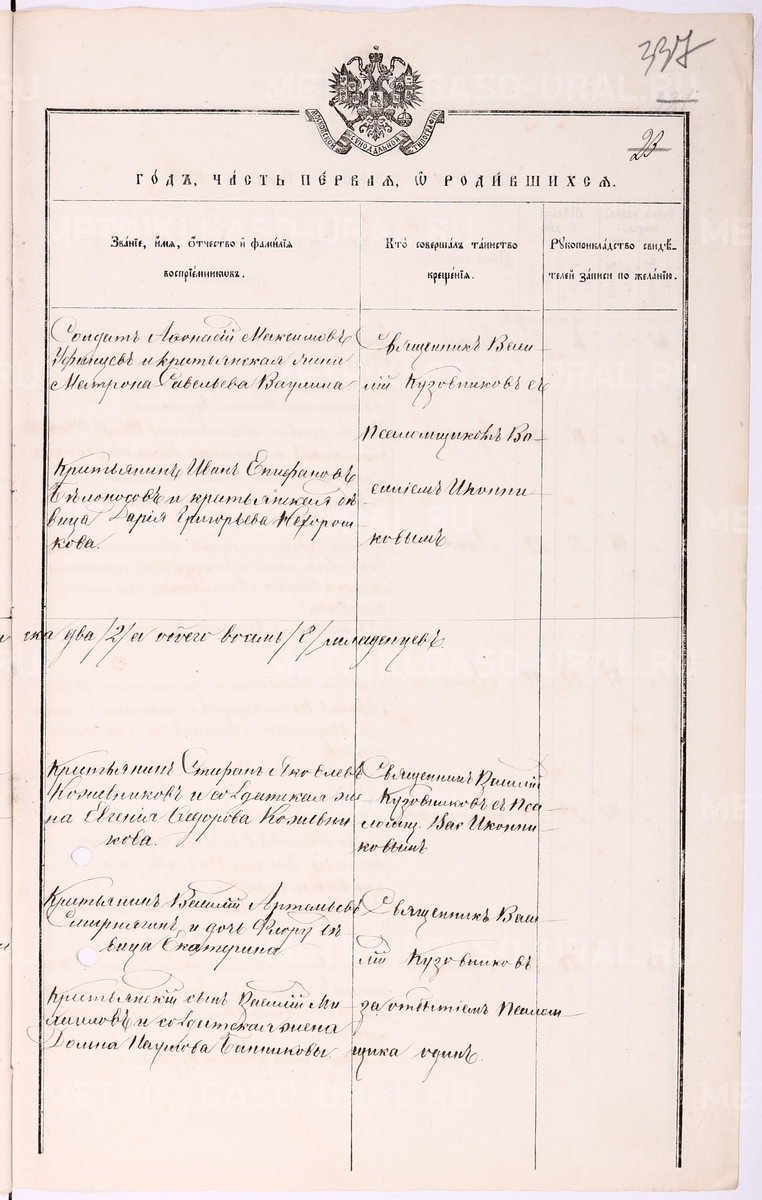 337
20
МОСКОВСКОЙ СѴНОДАЛЬНОЙ ТИПОГРАФІИ
ГО́ДЪ, ЧА́СТЬ ПЕ́РВАѦ, Ѡ҆ РОДИ́ВШИХСѦ.
Зва́нїе, и҆́мѧ, ѻ҆́тчество и҆ фами́лїѧ
воспрїе́мниковъ.
Кто̀ соверша́лъ та́инство
креще́нїѧ.
Рꙋкоприкла́дство свидѣ́-
телей за́писи по жела́нїю.
Солдатъ Аѳонасій Максимовъ
Уфинцевъ и крестьянская жена
Матрона Савельева Ваулина
Священникъ Васи-
лій Кузовниковъ съ
Псаломщикомъ Ва-
силіемъ Иконни-
ковымъ.
Крестьянинъ Иванъ Епифановъ
Бѣлоносовъ и крестьянская дѣ
вица Дарія Григорьева Нехорош
кова.
ска два /2/ а обоего восемь /8/ младенцевъ.
Крестьянинъ Стефанъ Яковлевъ
Кожевниковъ и солдатская же
на Евгенія Ѳедорова Кожевни
кова.
Священникъ Василій
Кузовниковъ съ Пса
ломщ. Вас Иконни
ковымъ
Крестьянинъ Василій Артемьевъ
Смирнягинъ и дочь дѣ
вица Екатерина.
Священникъ Васи
лій Кузовниковъ
за отбытіемъ Псалом
щика одинъ.
Крестьянскій сынъ Василій Ми
хаиловъ и солдатская жена
Домна Наумова Банниковы
METRIKI.GASO-URAL.RU